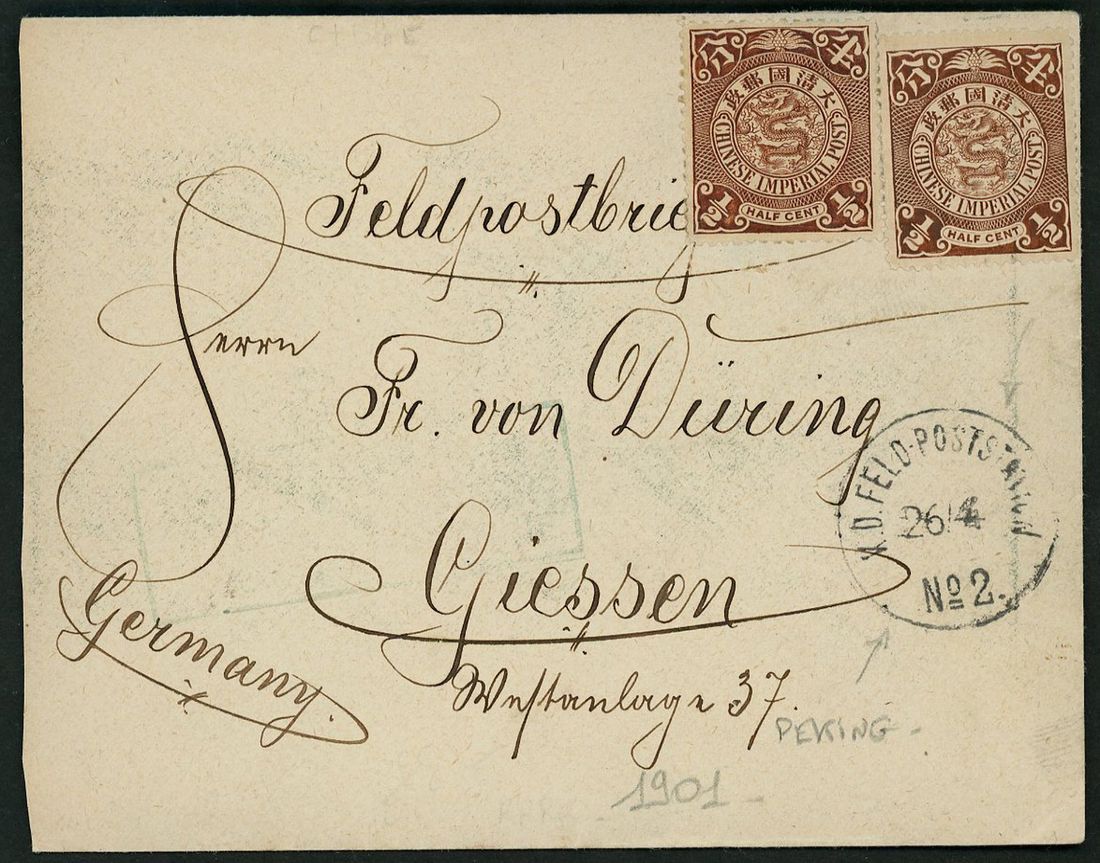 Feldpostbrie
Herrn
Fr. von Düring
Giessen
Westanlage 37.
Germany.
分 半
大清國郵政
CHINESE IMPERIAL POST
½ HALF CENT ½
分 半
大清國郵政
CHINESE IMPERIAL POST
½ HALF CENT ½
K.D.FELD-POSTSTATION
26/4
No 2.
PEKING-
1901-